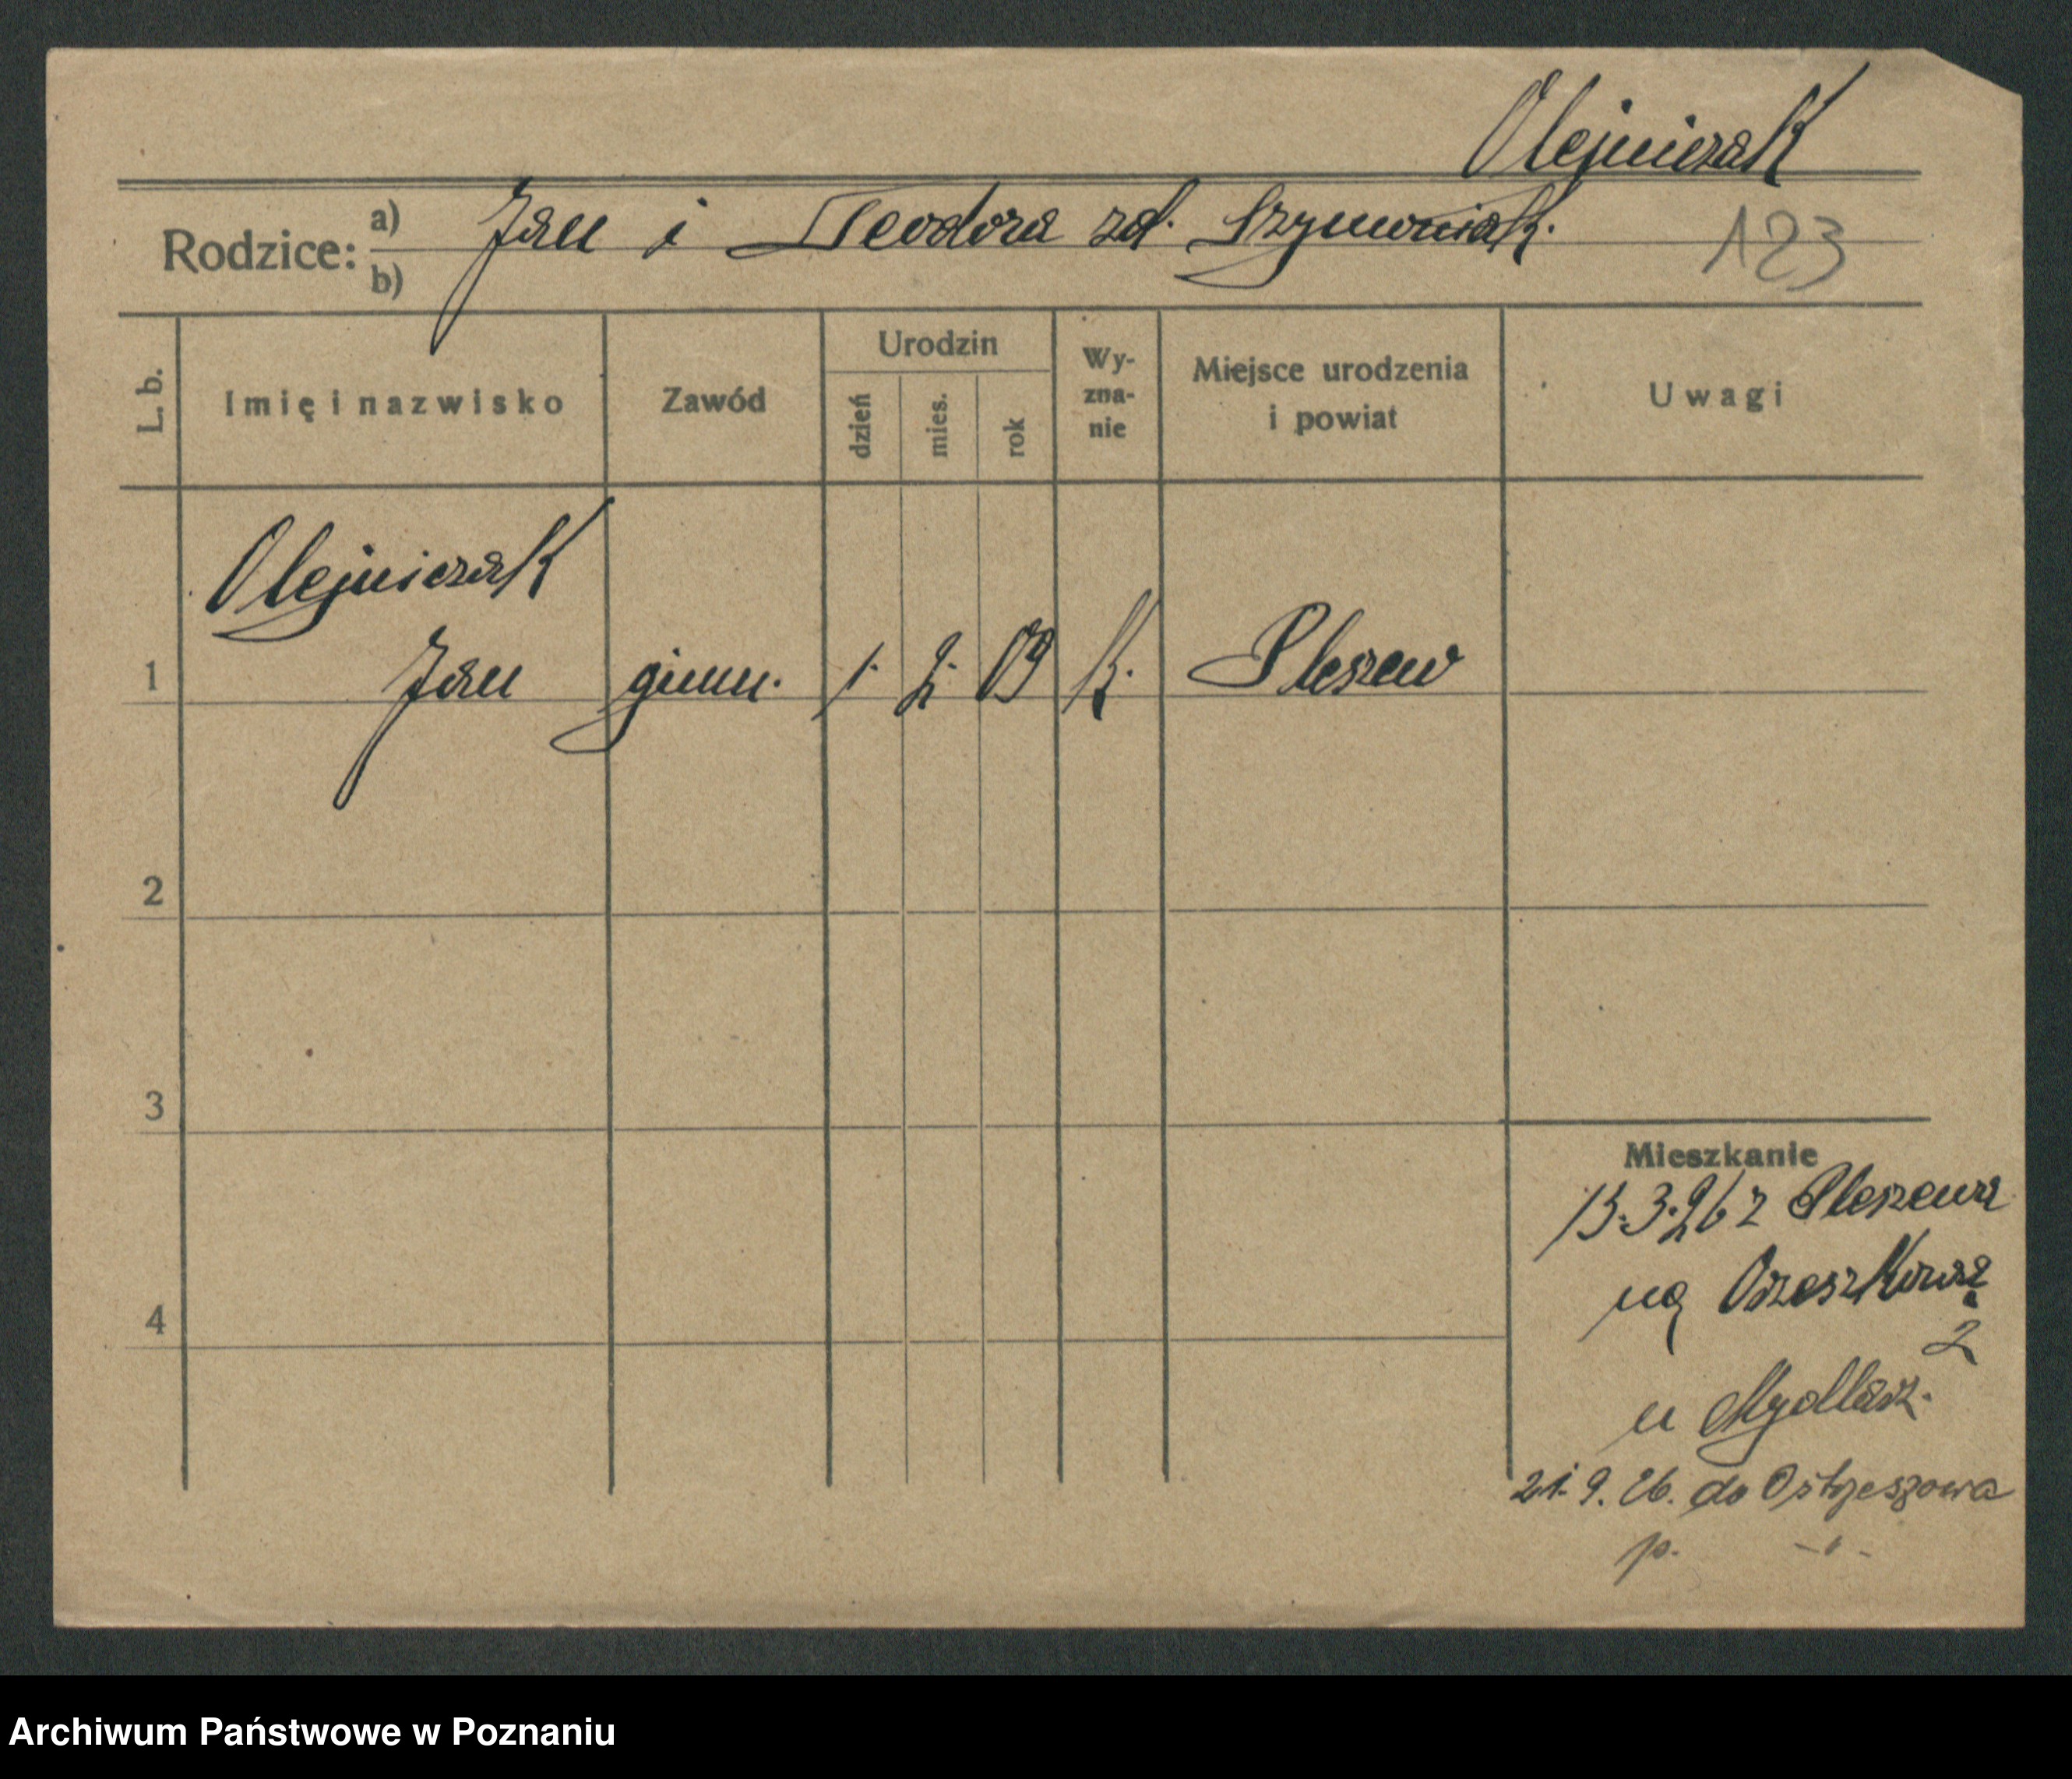 Olejniczak
Rodzice: a) Jan i Teodora zd. Szymoniak.
b)
123
L. b. Imię i nazwisko Zawód Urodzin dzień mies. rok Wy-zna-nie Miejsce urodzenia i powiat Uwagi
Olejniczak
1 Jan gimn. 1. 2. 09 k. Pleszew
2
3
4
Mieszkanie
13.3.26 z Pleszewa
na Orzeszkowa
2
u Mydlarz.
21. 9. 26. do Ostrzeszowa
p. -"-
Archiwum Państwowe w Poznaniu